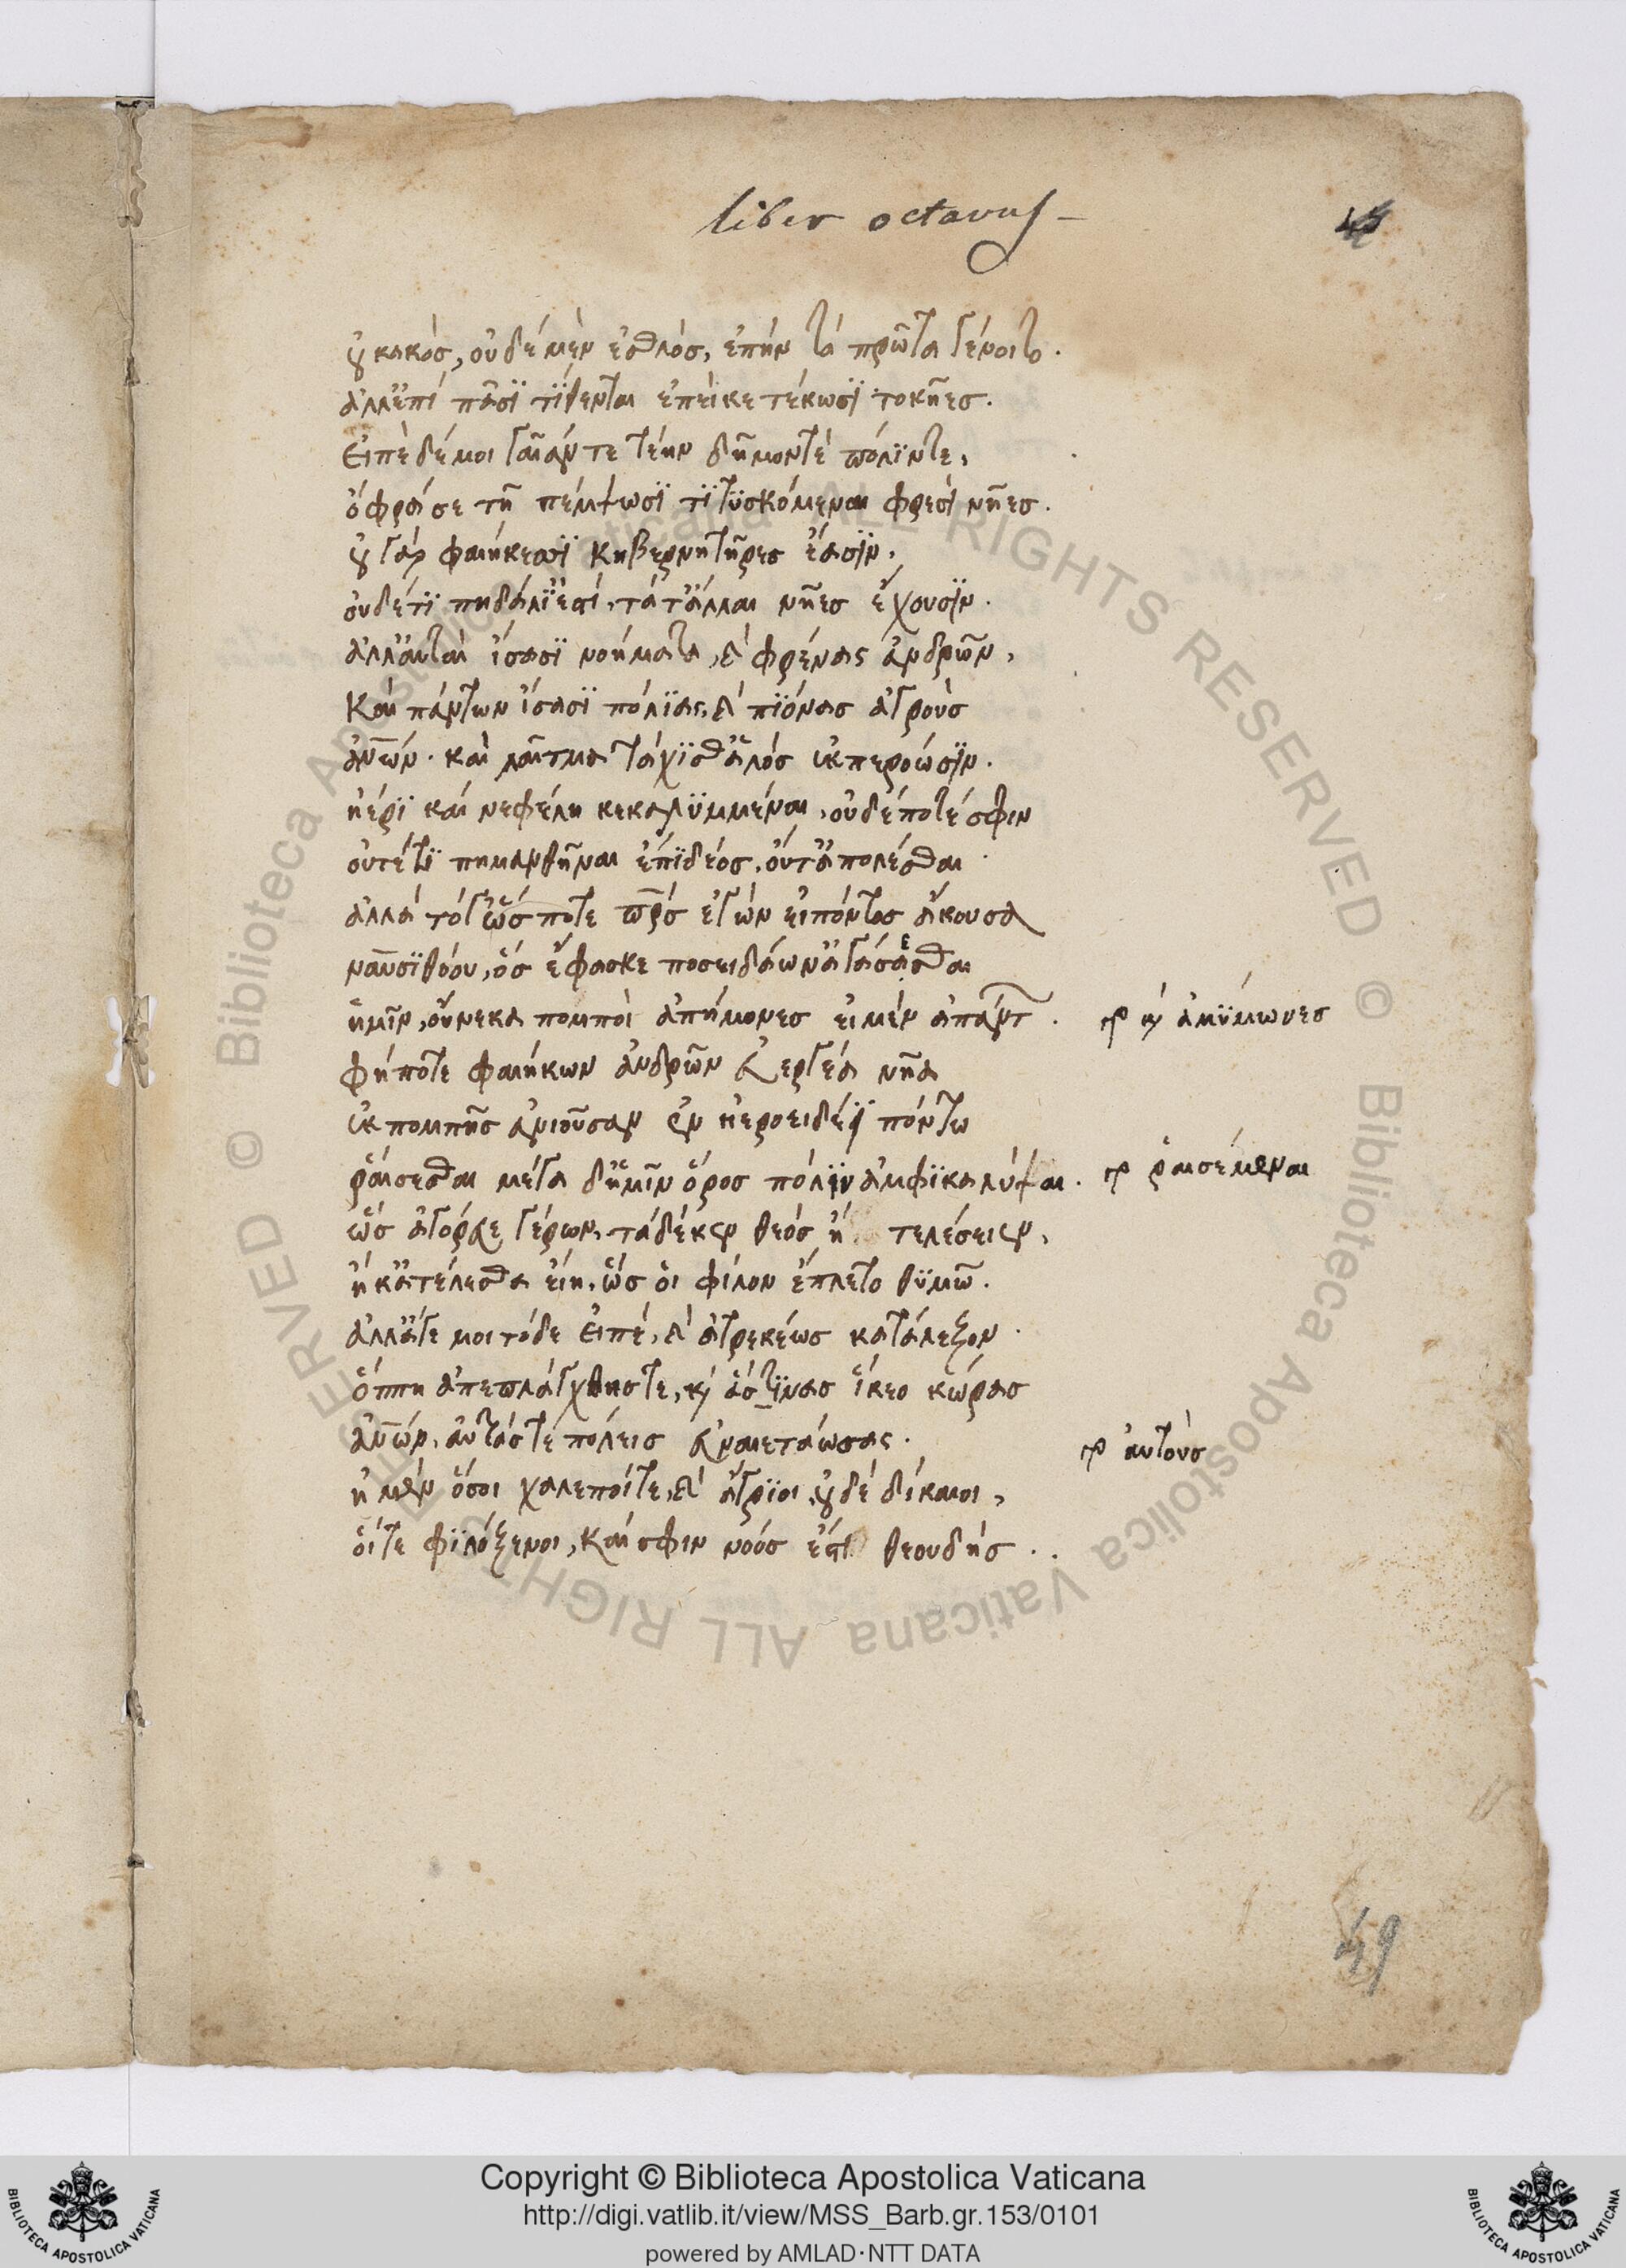 liber octavus –
45
οὐ κακὸς, οὐδὲ μὲν ἐσθλός, ἐπὴν τὰ πρῶτα γένοιτο.
ἀλλἐπὶ πᾶσϊ τΐθενται ἐπεί κε τέκωσϊ τοκῆες.
εἰπὲ δέ μοι γαῖάν τε τεὴν δῆμόν τὲ πόλϊν τε,
ὄφρά σε τῆ πέμψωσϊ τϊτϋσκόμεναι φρεσὶ νῆες.
οὐ γὰρ φαιήκεσσϊ κηβερνητῆρες ἔασϊν,
οὐδέ τϊ πηδάλϊ ἐστί, τά τἄλλαι νῆες ἔχουσϊν.
ἀλλ αὐταὶ ἴσασϊ νοήματα, καὶ φρένας ἀνδρῶν,
Καὶ πάντων ἴσασϊ πόλϊας, καὶ πϊόνας ἀγροὺς
ἀν͞ων. καὶ λαῖτμα τάχϊσθ ἁλὸς ἐκπεροώσϊν.
ἠέρϊ καὶ νεφέλη κεκαλϋμμέναι, οὐδέποτέ σφιν
οὔτέ τϊ πημανθῆναι ἔπϊ δέος, οὔτ ἀπολέσθαι.
ἀλλὰ τόγ ὥς ποτε πρ͞ς ἐγὼν εἰπόντος ἄκουσα
ναυσϊθόου, ὃς ἔφασκε ποσειδάων ἀγάσαεσθαι
ἡμῖν, οὕνεκα πομποὶ ἀπήμονες εἰμὲν ἁπάντ.
γρ καὶ ἀμϋμωνες
φή ποτε φαιήκων ἀνδρῶν εὐεργέα νῆα
ἐκ πομπῆς ἀνιοῦσαν ἐν ἠεροειδέϊ πόντω
ῥαίσεσθαι μέγα δἧμϊν ὄρος πόλϊν ἀμφϊκαλύψαι.
γρ ῥαισέμεναι
ὣς ἀγόρευε γέρων, τὰ δέ κεν θεὸς ἢ τελέσειεν,
ἤ κ ἀτέλεστα εἴη, ὥς οἱ φίλον ἔπλετο θϋμῶ.
ἀλλἄγε μοι τόδε εἰπέ, καὶ ἀτρεκέως κατάλεξον.
ὅππη ἀπεπλάγχθης τε, καὶ ἅς τϊνας ἵκεο χώρας
ἀν͞ων, αὐτάς τέ πόλεις εὐναιεταώσας.
γρ αὐτοὺς
ἠ μὲν ὅσοι χαλεποί τε, καὶ ἄγρϊοι οὐδὲ δίκαιοι,
οἵτε φϊλόξενοι, καί σφιν νόος ἐστὶ θεουδής..
49
Copyright © Biblioteca Apostolica Vaticana
http://digi.vatlib.it/view/MSS_Barb.gr.153/0101
powered by AMLAD·NTT DATA
BIBLIOTECA APOSTOLICA VATICANA
BIBLIOTECA APOSTOLICA VATICANA
© Biblioteca Apostolica Vaticana ALL RIGHTS RESERVED
© Biblioteca Apostolica Vaticana ALL RIGHTS RESERVED